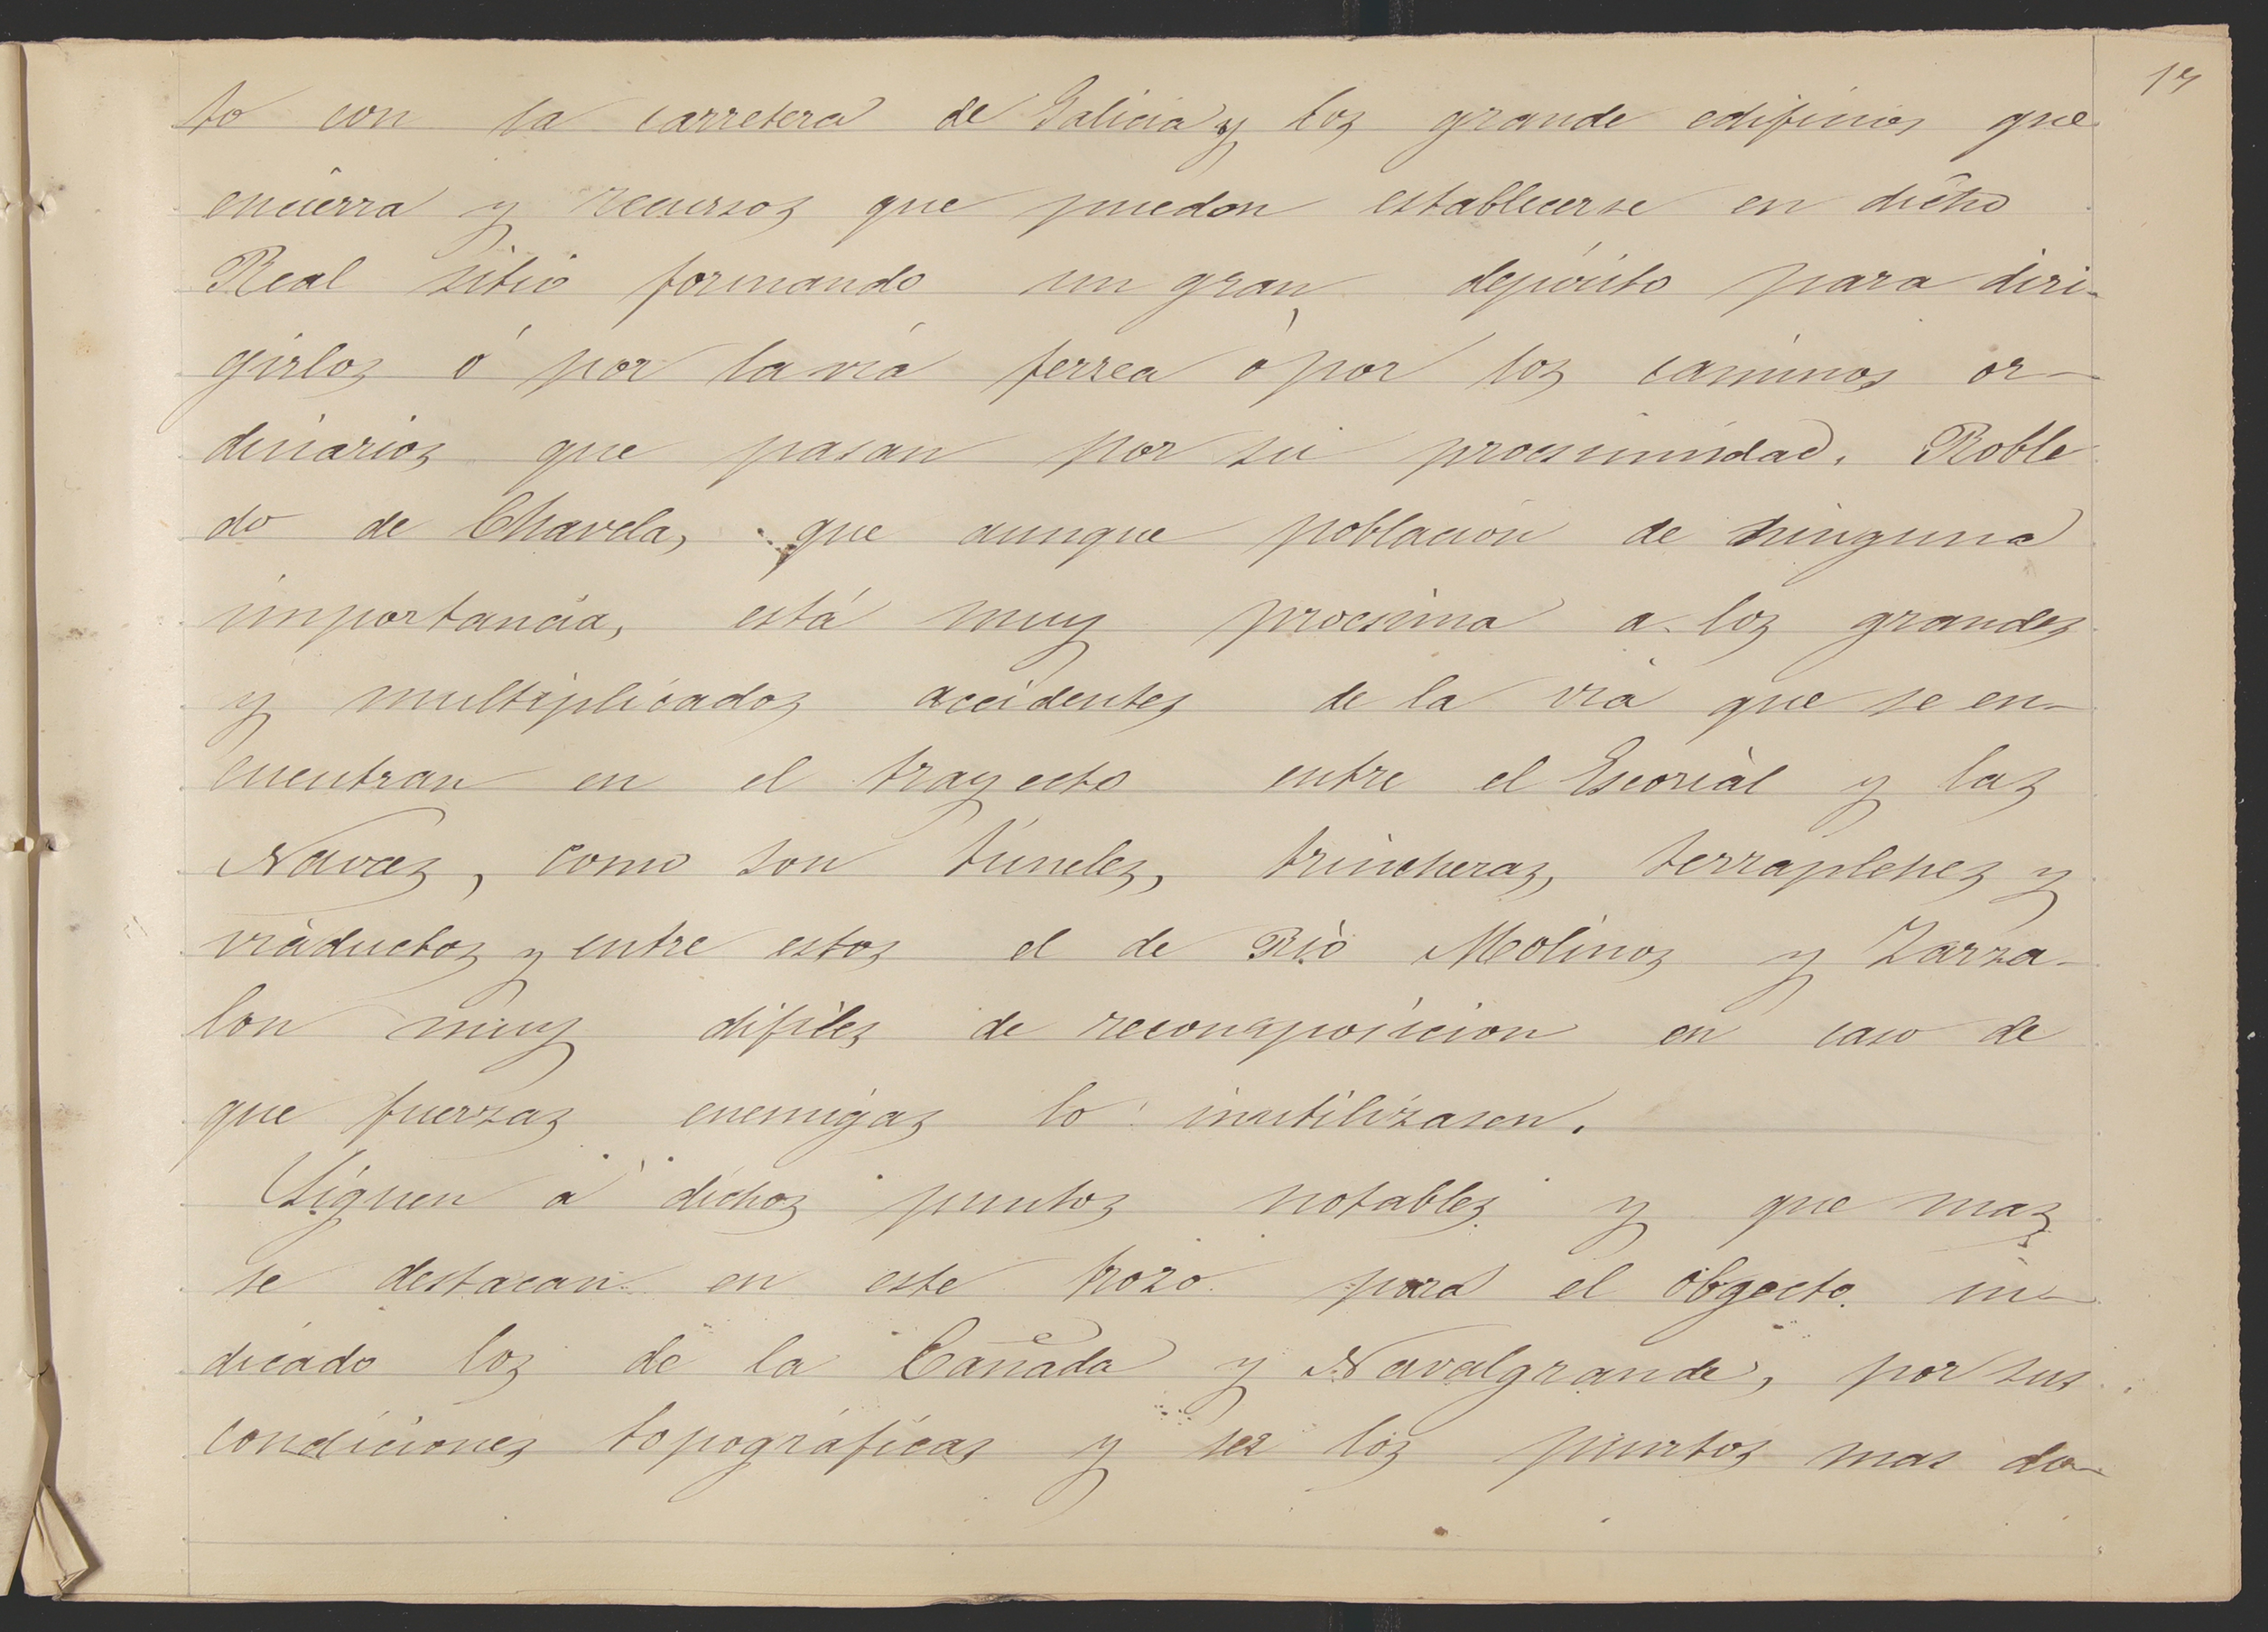 17
to con la carretera de Galicia y los grande edificios que
encierra y recursos que pueden establecerse en dicho
Real sitio formando un gran depósito para diri-
girlos ó por la via ferrea ó por los caminos or-
dinarios que pasan por su procsimidad. Roble
do de Chavela, que aunque poblacion de ninguna
importancia, está muy procsima a los grandes
y multiplicados accidentes de la via que se en-
cuentran en el trayecto entre el Escorial y las
Navas, como son túneles, trincheras, terraplenes y
viaductos y entre estos el de Rio Molinos y Zarza-
lon muy difiles de reconposicion en caso de
que fuerzas enemigas lo inutilizasen.
Siguen á dichos puntos notables y que mas
se destacan en este trozo para el obgecto in-
dicado los de la Cañada y Navalgrande, por sus
condiciones topográficas y ser los puntos mas do-